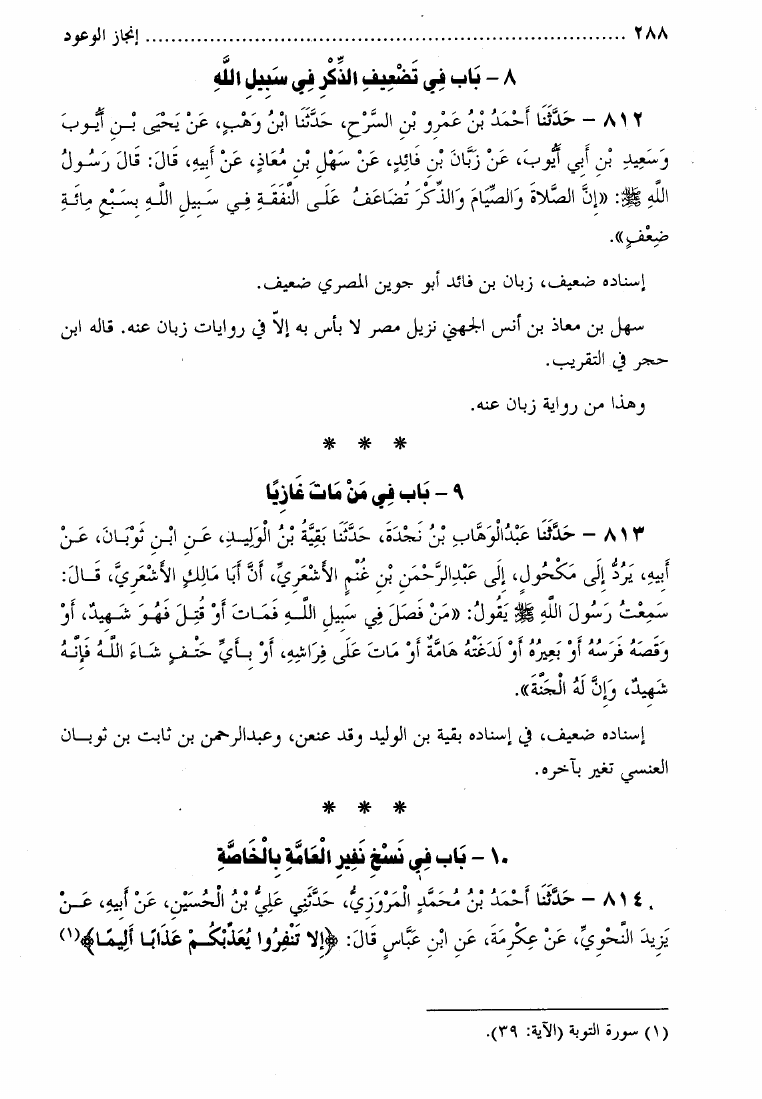 ٢٨٨ ........................................................................ إنجاز الوعود
٨ – بَاب فِي تَضْعِيفِ الذِّكْرِ فِي سَبِيلِ اللَّهِ
٨١٢ – حَدَّثَنَا أَحْمَدُ بْنُ عَمْرِو بْنِ السَّرْحِ، حَدَّثَنَا ابْنُ وَهْبٍ، عَنْ يَحْيَى بْنِ أَيُّوبَ
وَسَعِيدِ بْنِ أَبِي أَيُّوبَ، عَنْ زَبَّانَ بْنِ فَائِدٍ، عَنْ سَهْلِ بْنِ مُعَاذٍ، عَنْ أَبِيهِ، قَالَ: قَالَ رَسُولُ
اللَّهِ ﷺ: «إِنَّ الصَّلاةَ وَالصِّيَامَ وَالذِّكْرَ تُضَاعَفُ عَلَى النَّفَقَةِ فِي سَبِيلِ اللَّهِ بِسَبْعِ مِائَةِ
ضِعْفٍ».
إسناده ضعيف، زبان بن فائد أبو جوين المصري ضعيف.
سهل بن معاذ بن أنس الجهني نزيل مصر لا بأس به إلاّ في روايات زبان عنه. قاله ابن
حجر في التقريب.
وهذا من رواية زبان عنه.
* * *
٩ – بَاب فِي مَنْ مَاتَ غَازِيًا
٨١٣ – حَدَّثَنَا عَبْدُالْوَهَّابِ بْنُ نَجْدَةَ، حَدَّثَنَا بَقِيَّةُ بْنُ الْوَلِيدِ، عَنِ ابْنِ ثَوْبَانَ، عَنْ
أَبِيهِ، يَرُدُّ إِلَى مَكْحُولٍ، إِلَى عَبْدِالرَّحْمَنِ بْنِ غَنْمٍ الأَشْعَرِيِّ، أَنَّ أَبَا مَالِكٍ الأَشْعَرِيَّ، قَالَ:
سَمِعْتُ رَسُولَ اللَّهِ ﷺ يَقُولُ: «مَنْ فَصَلَ فِي سَبِيلِ اللَّهِ فَمَاتَ أَوْ قُتِلَ فَهُوَ شَهِيدٌ، أَوْ
وَقَصَهُ فَرَسُهُ أَوْ بَعِيرُهُ أَوْ لَدَغَتْهُ هَامَّةٌ أَوْ مَاتَ عَلَى فِرَاشِهِ، أَوْ بِأَيِّ حَتْفٍ شَاءَ اللَّهُ فَإِنَّهُ
شَهِيدٌ، وَإِنَّ لَهُ الْجَنَّةَ».
إسناده ضعيف، في إسناده بقية بن الوليد وقد عنعن، وعبدالرحمن بن ثابت بن ثوبان
العنسي تغير بآخره.
* * *
١٠ – بَاب فِي نَسْخِ نَفِيرِ الْعَامَّةِ بِالْخَاصَّةِ
٨١٤ – حَدَّثَنَا أَحْمَدُ بْنُ مُحَمَّدٍ الْمَرْوَزِيُّ، حَدَّثَنِي عَلِيُّ بْنُ الْحُسَيْنِ، عَنْ أَبِيهِ، عَنْ
يَزِيدَ النَّحْوِيِّ، عَنْ عِكْرِمَةَ، عَنِ ابْنِ عَبَّاسٍ قَالَ: ﴿إِلا تَنْفِرُوا يُعَذِّبْكُمْ عَذَابًا أَلِيمًا﴾(١)
(١) سورة التوبة (الآية: ٣٩).